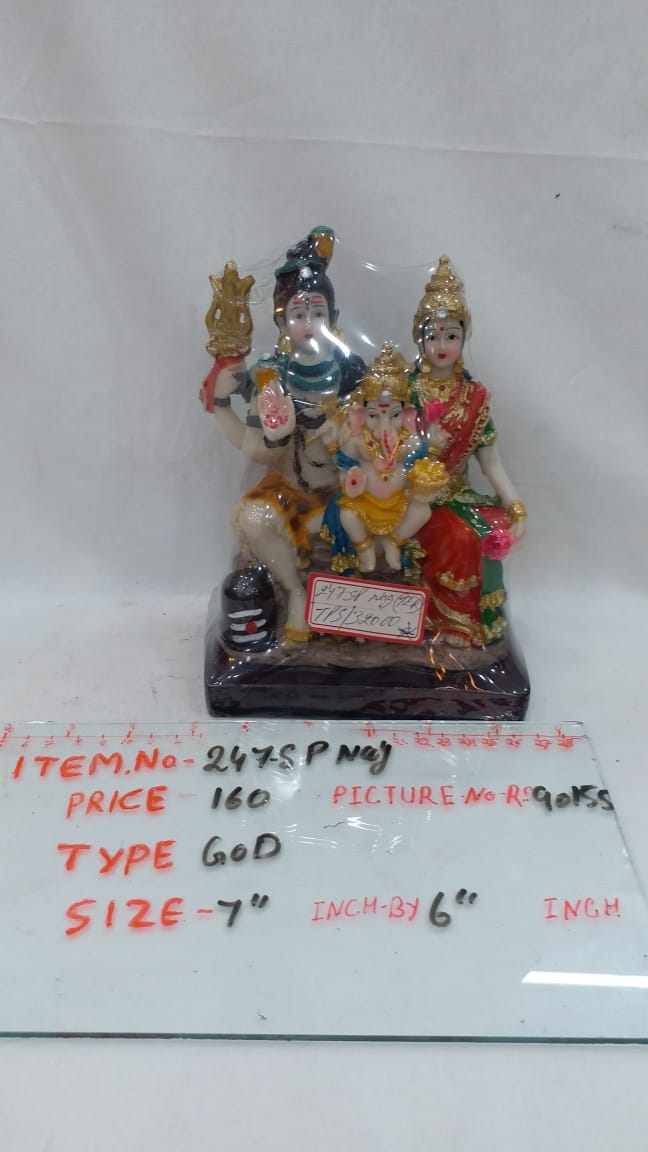 247 SP Nag
TPS/32000
ITEM.No- 247-SP Nag
PRICE - 160 PICTURE-No-RS 90155
TYPE GOD
SIZE - 7" INCH-BY 6" INCH